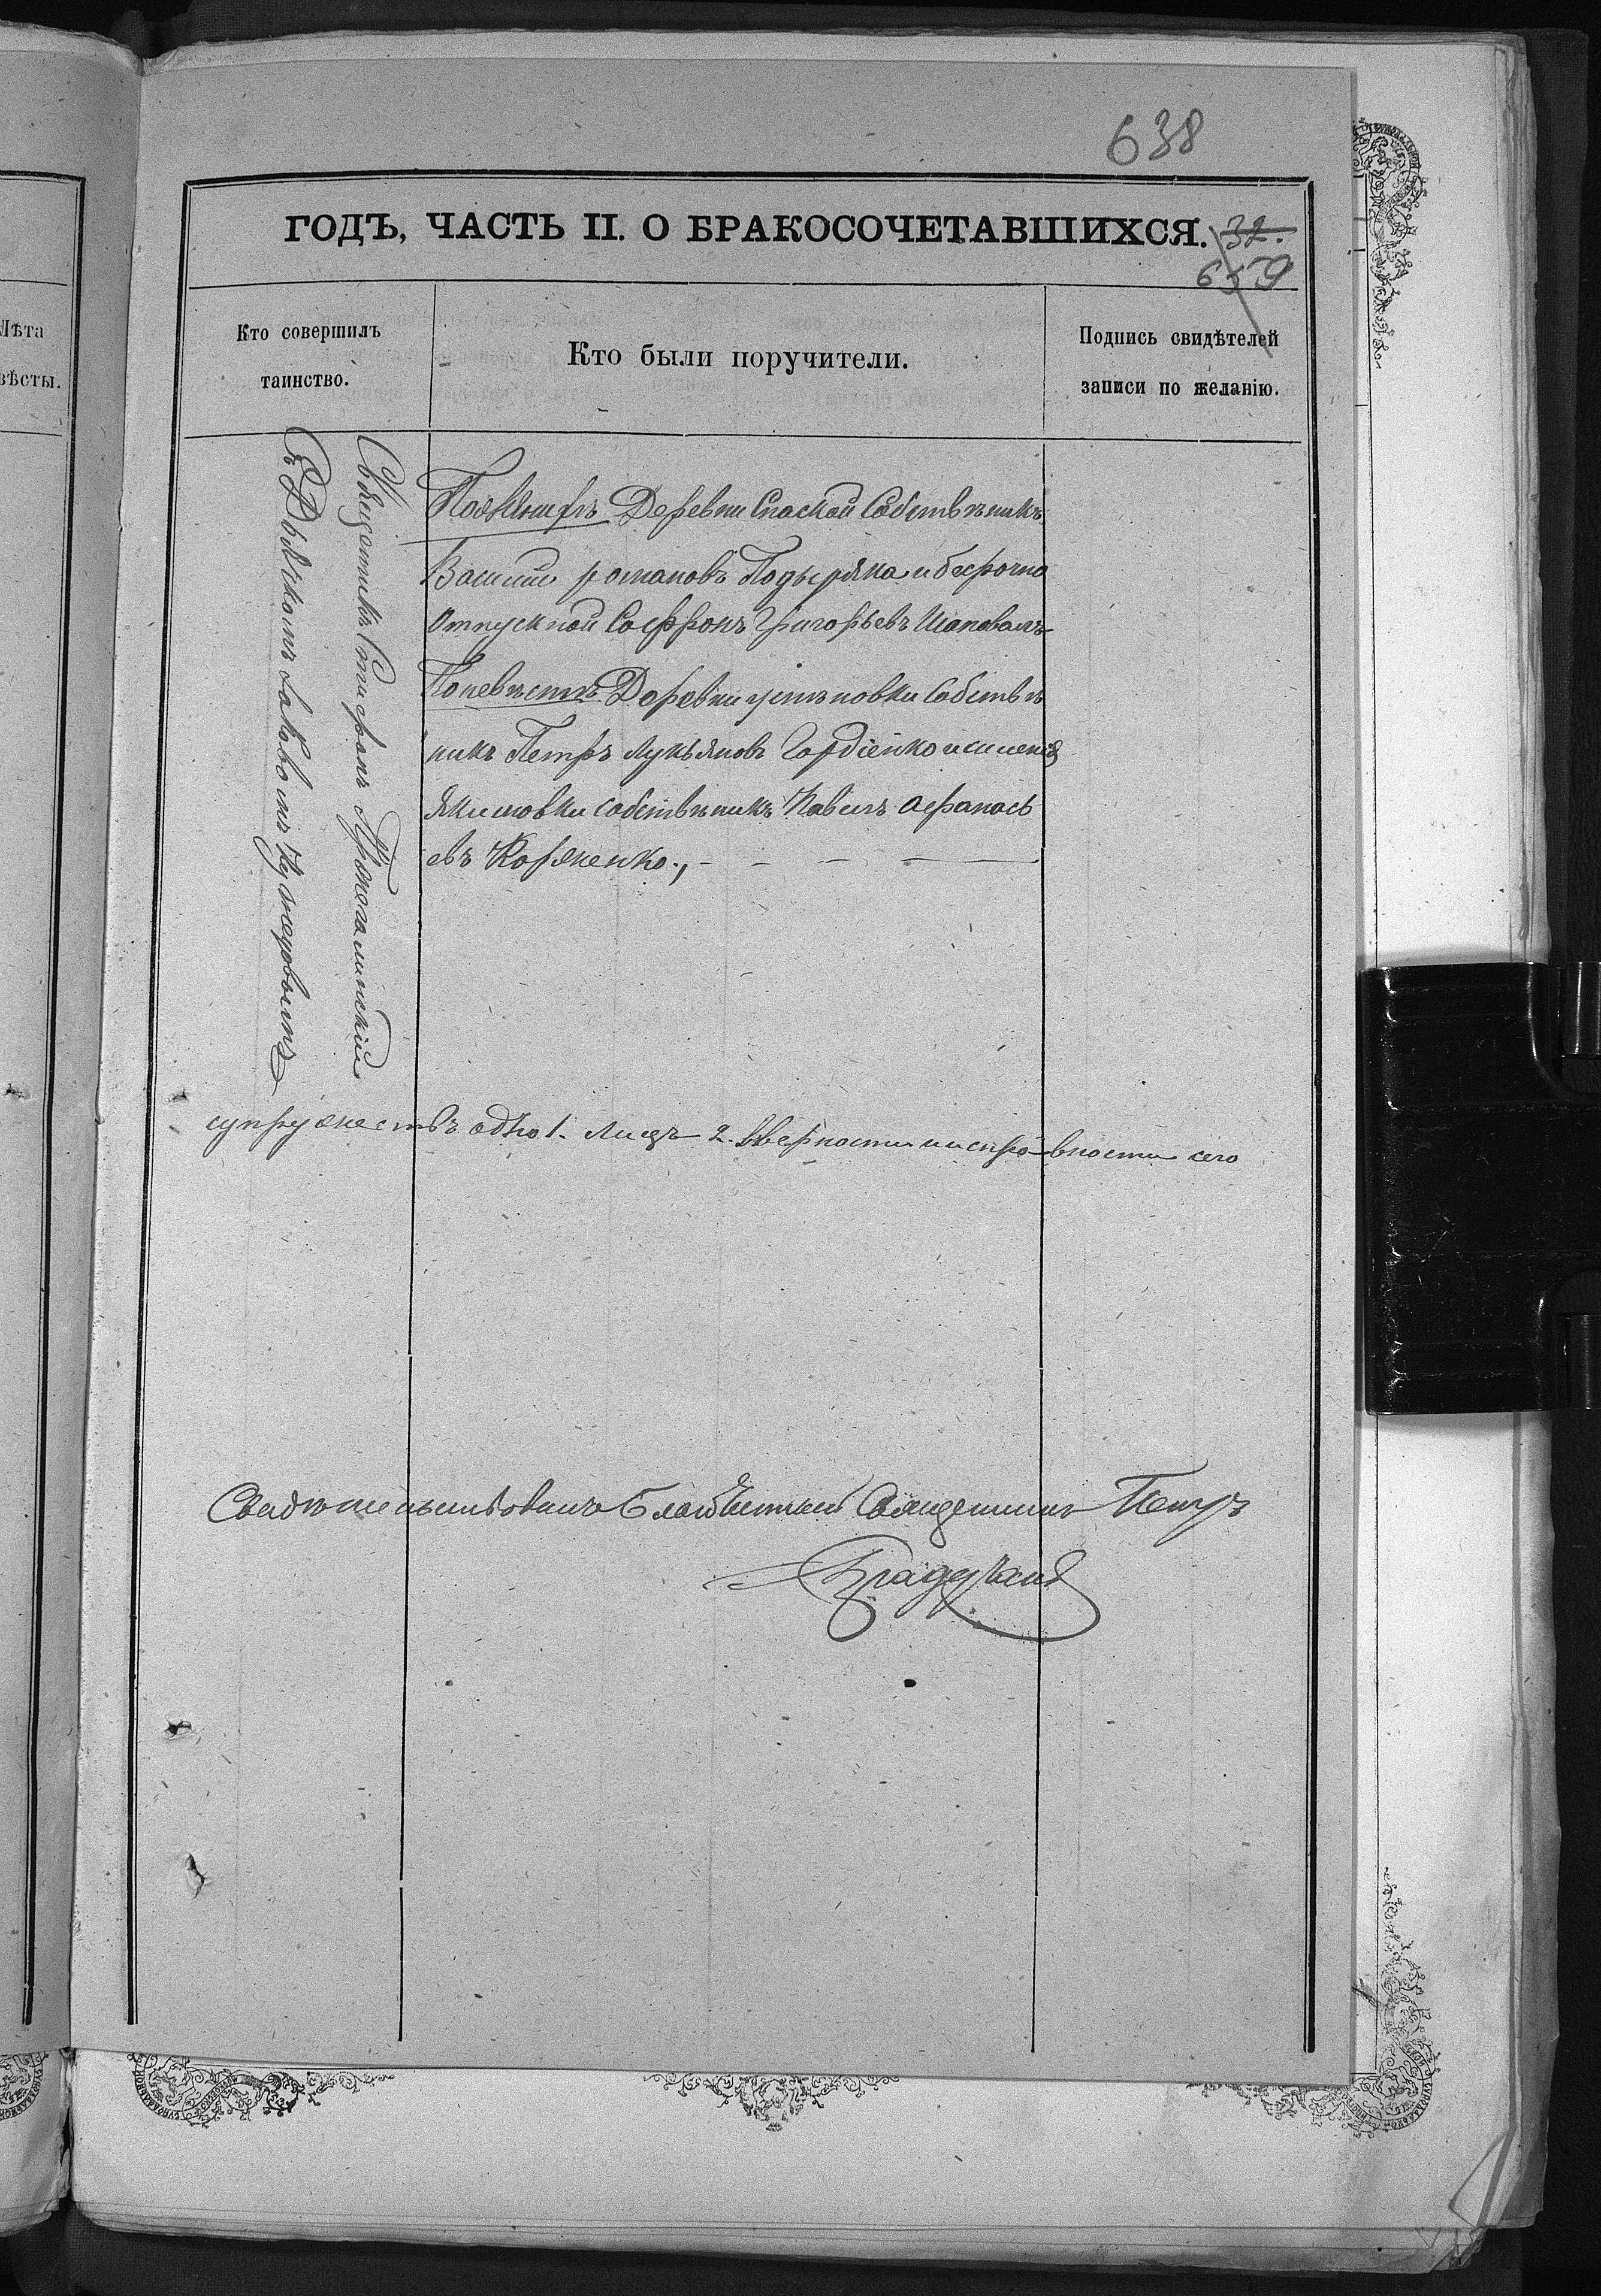 638
ГОДЪ, ЧАСТЬ II. О БРАКОСОЧЕТАВШИХСЯ.
32.
659
Лѣта
вѣсты.
Кто совершилъ
таинство.
Кто были поручители.
Подпись свидѣтелей
записи по желанію.
Священникъ Стефанъ
Съ Дьячкомъ Іаковомъ
По Женихѣ Деревни Спаской Собствѣникъ
Василий романовъ и безсрочно
Отпускной Софронъ Григорьевъ Шаповалъ
По невѣстѣ Деревни Собствѣ
никъ Петръ Лукьяновъ Гордіенко и имения
Якимовки собствѣникъ Павелъ Афанась
евъ Корженко.,
супружествъ одно 1. Лицъ 2. вверности и исправности сего
Свидѣтельствовалъ Благочинный Священникъ Петръ